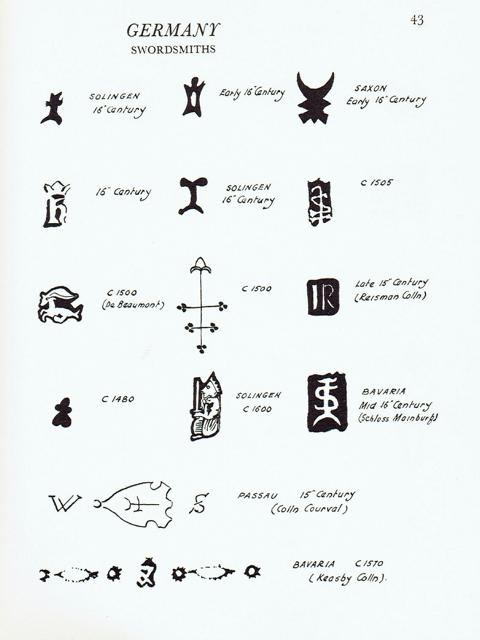 43
GERMANY
SWORDSMITHS
SOLINGEN
16" Century
Early 16" Century
SAXON
Early 16" Century
16" Century
SOLINGEN
16" Century
C 1505
C 1500
(De Beaumont)
C 1500
Late 15" Century
(Reisman Colln)
IR
C 1480
SOLINGEN
C 1600
BAVARIA
Mid 16" Century
(Schloss Mainburg)
W
S
PASSAU 15" Century
(Colln Courval)
BAVARIA C1570
(Keasby Colln).